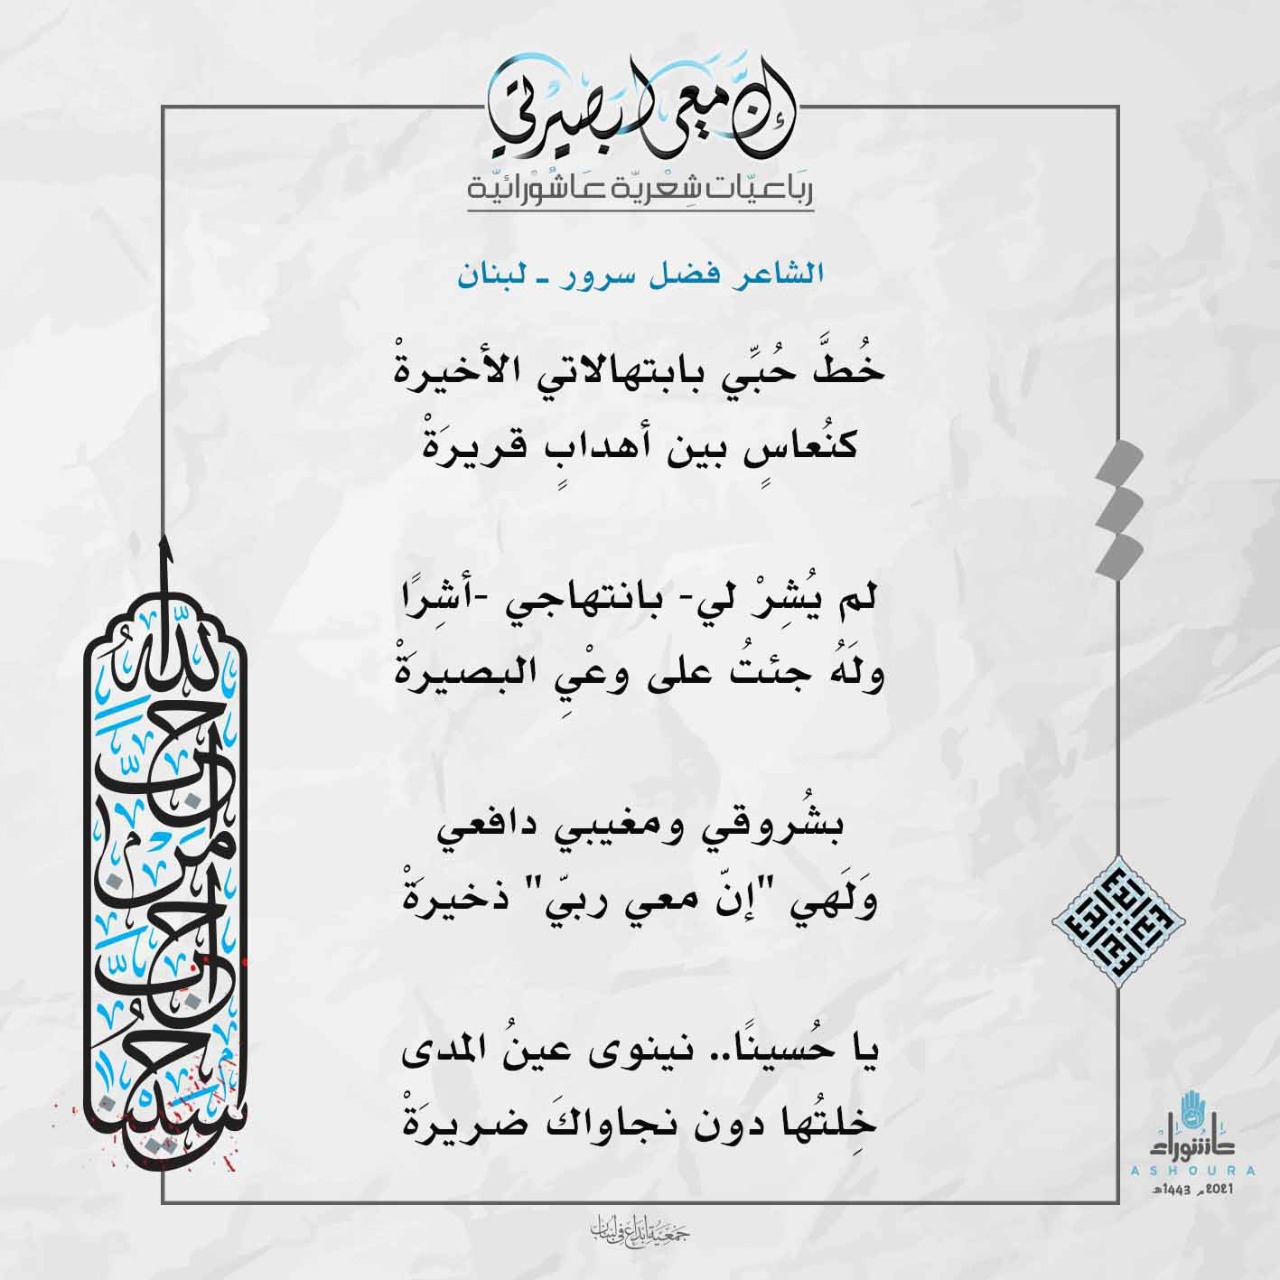 إنَّ معي لبصيرتي
رباعيّات شِعْريّة عَاشُوْرائيّة
الشاعر فضل سرور ـ لبنان
خُطَّ حُبِّي بابتهالاتي الأخيرةْ
كنُعاسٍ بين أهدابٍ قريرَةْ
لم يُشِرْ لي- بانتهاجي -أشِرًا
ولَهُ جئتُ على وعْيِ البصيرَةْ
بشُروقي ومغيبي دافعي
وَلَهي "إنّ معي ربيّ" ذخيرَةْ
يا حُسينًا.. نينوى عينُ المدى
خِلتُها دون نجاواكَ ضريرَةْ
أحب الله من أحب حسينا
عاشوراء
ASHOURA
2021م 1443هـ
جمعية إبداع في لبنان